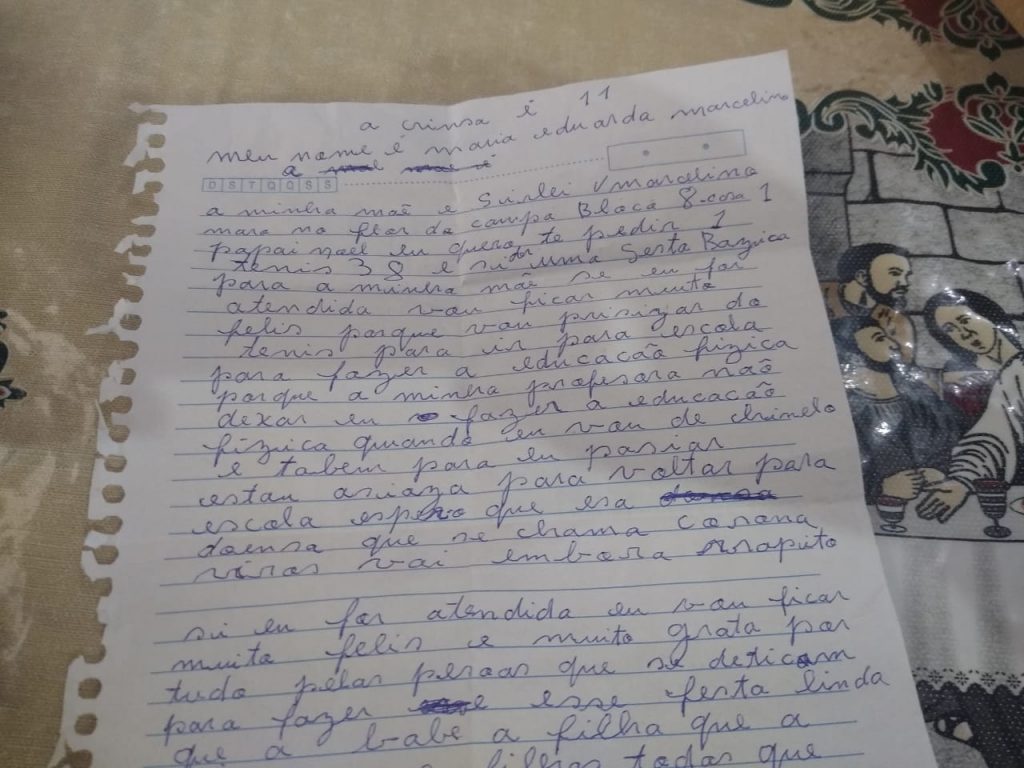 a crinsa é 11
meu nome é maria eduarda marcelino
a
D S T Q Q S S
a minha maē e Surlei V marcelino
mora no flor do campo Bloco 8. cosa 1
papai noel eu quero te pedir 1
tenis 38 e si der uma Sesta Bazica
para a minha mãe se eu for
atendida vou ficar muito
felis porque vou prisizar do
tenis para ir para escola
para fazer a educacão fizica
porque a minha profesora não
dexar eu fazer a educacão
fízica quando eu vou de chinelo
e tabem para eu pasiar
estou para voltar para
escola espero que esa
doensa que se chama corona
viros vai embora rrapito
si eu for atendida eu vou ficar
muito felis e muito grata por
tudo pelas pesoas que se deticam
para fazer esse festa linda
que a babe a filha que a
filhos todos que